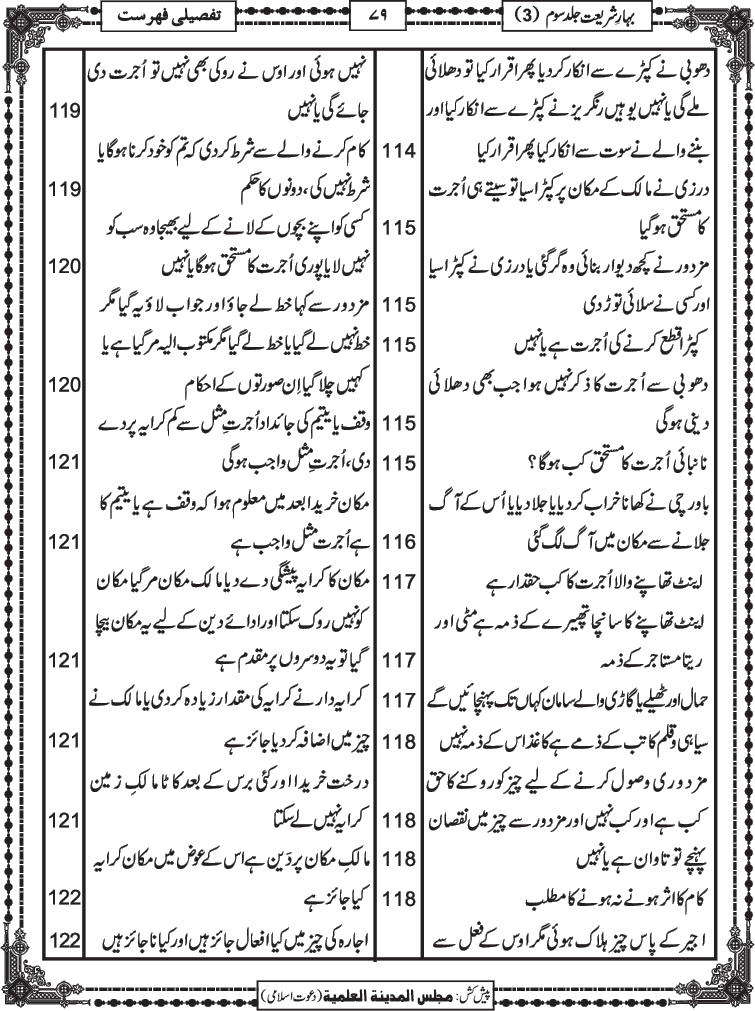 بہارِ شریعت جلد سوم (3)
۷۹
تفصیلی فہرست
دھوبی نے کپڑے سے انکار کر دیا پھر اقرار کیا تو دھلائی
ملے گی یا نہیں یوہیں رنگریز نے کپڑے سے انکار کیا اور
بننے والے نے سوت سے انکار کیا پھر اقرار کیا 114
درزی نے مالک کے مکان پر کپڑا سیا تو سیتے ہی اُجرت
کا مستحق ہوگیا 115
مزدور نے کچھ دیوار بنائی وہ گر گئی یا درزی نے کپڑا سیا
اور کسی نے سلائی توڑ دی 115
کپڑا قطع کرنے کی اُجرت ہے یا نہیں 115
دھوبی سے اُجرت کا ذکر نہیں ہوا جب بھی دھلائی
دینی ہوگی 115
نانبائی اُجرت کا مستحق کب ہوگا؟ 115
باورچی نے کھانا خراب کر دیا یا جلا دیا یا اُس کے آگ
جلانے سے مکان میں آگ لگ گئی 116
اینٹ تھاپنے والا اُجرت کا کب حقدار ہے 117
اینٹ تھاپنے کا سانچا تھپیرے کے ذمہ ہے مٹی اور
ریتا مستاجر کے ذمہ 117
حمال اور ٹھیلے یا گاڑی والے سامان کہاں تک پہنچائیں گے 117
سیاہی و قلم کاتب کے ذمے ہے کاغذ اس کے ذمہ نہیں 118
مزدوری وصول کرنے کے لیے چیز کو روکنے کا حق
کب ہے اور کب نہیں اور مزدور سے چیز میں نقصان 118
پہنچے تو تاوان ہے یا نہیں 118
کام کا اثر ہونے نہ ہونے کا مطلب 118
اجیر کے پاس چیز ہلاک ہوئی مگر اوس کے فعل سے
نہیں ہوئی اور اوس نے روکی بھی نہیں تو اُجرت دی
جائے گی یا نہیں 119
کام کرنے والے سے شرط کر دی کہ تم کو خود کرنا ہوگا یا
شرط نہیں کی، دونوں کا حکم 119
کسی کو اپنے بچوں کے لانے کے لیے بھیجا وہ سب کو
نہیں لایا پوری اُجرت کا مستحق ہوگا یا نہیں 120
مزدور سے کہا خط لے جاؤ اور جواب لاؤ یہ گیا مگر
خط نہیں لے گیا یا خط لے گیا مگر مکتوب الیہ مر گیا ہے یا
کہیں چلا گیا اِن صورتوں کے احکام 120
وقف یا یتیم کی جائداد اُجرتِ مثل سے کم کرایہ پر دے
دی، اُجرتِ مثل واجب ہوگی 121
مکان خریدا بعد میں معلوم ہوا کہ وقف ہے یا یتیم کا
ہے اُجرت مثل واجب ہے 121
مکان کا کرایہ پیشگی دے دیا مالک مکان مر گیا مکان
کو نہیں روک سکتا اور ادائے دین کے لیے یہ مکان بیچا
گیا تو یہ دوسروں پر مقدم ہے 121
کرایہ دار نے کرایہ کی مقدار زیادہ کر دی یا مالک نے
چیز میں اضافہ کر دیا جائز ہے 121
درخت خریدا اور کئی برس کے بعد کاٹا مالکِ زمین
کرایہ نہیں لے سکتا 121
مالکِ مکان پر دَین ہے اس کے عوض میں مکان کرایہ
کیا جائز ہے 122
اجارہ کی چیز میں کیا افعال جائز ہیں اور کیا ناجائز ہیں 122
پیش کش: مجلس المدینۃ العلمیۃ (دعوت اسلامی)